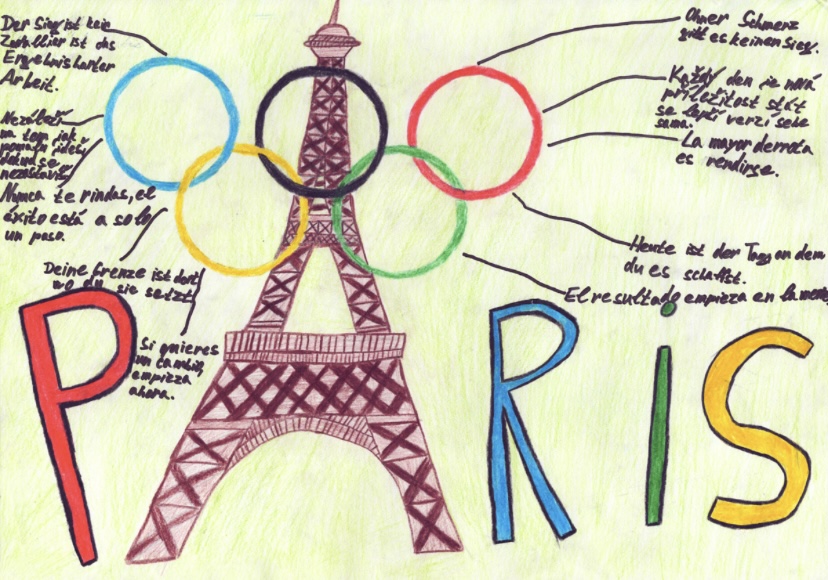 Der Sieg ist kein
Zuvallier ist das
Ergebnis harter
Arbeit.
Nezáleží
na tom jak
pomalu jdeš,
dokud se
nezastavíš
Nunca te rindas, el
éxito está a solo
un paso.
Deine Grenze ist dort
wo du sie setzt
Si quieres
un cambio,
empieza
ahora.
Ohner Schmerz
gibt es keinen Sieg.
Každý den je nová
příležitost stát
se lepší verzí sebe
sama.
La mayor derrota
es rendirse.
Heute ist der Tag an dem
du es schaffst.
El resultado empieza en la
PARiS